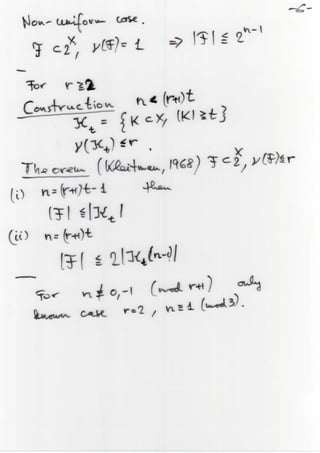 -6-
Non-uniform case.
F ⊂ 2^X, ν(F) = 1 ⇒ |F| ≦ 2^{n-1}
For r ≧ 2
Construction n < (r+1)t
K_t = {K ⊂ X, |K| ≧ t}
ν(K_t) ≦ r.
Theorem (Kleitman, 1968) F ⊂ 2^X, ν(F) ≦ r
(i) n = (r+1)t-1 then
|F| ≦ |K_t|
(ii) n = (r+1)t
|F| ≦ 2|K_t(n-1)|
For n ≢ 0, -1 (mod r+1) only
known case r=2, n ≡ 1 (mod 3).